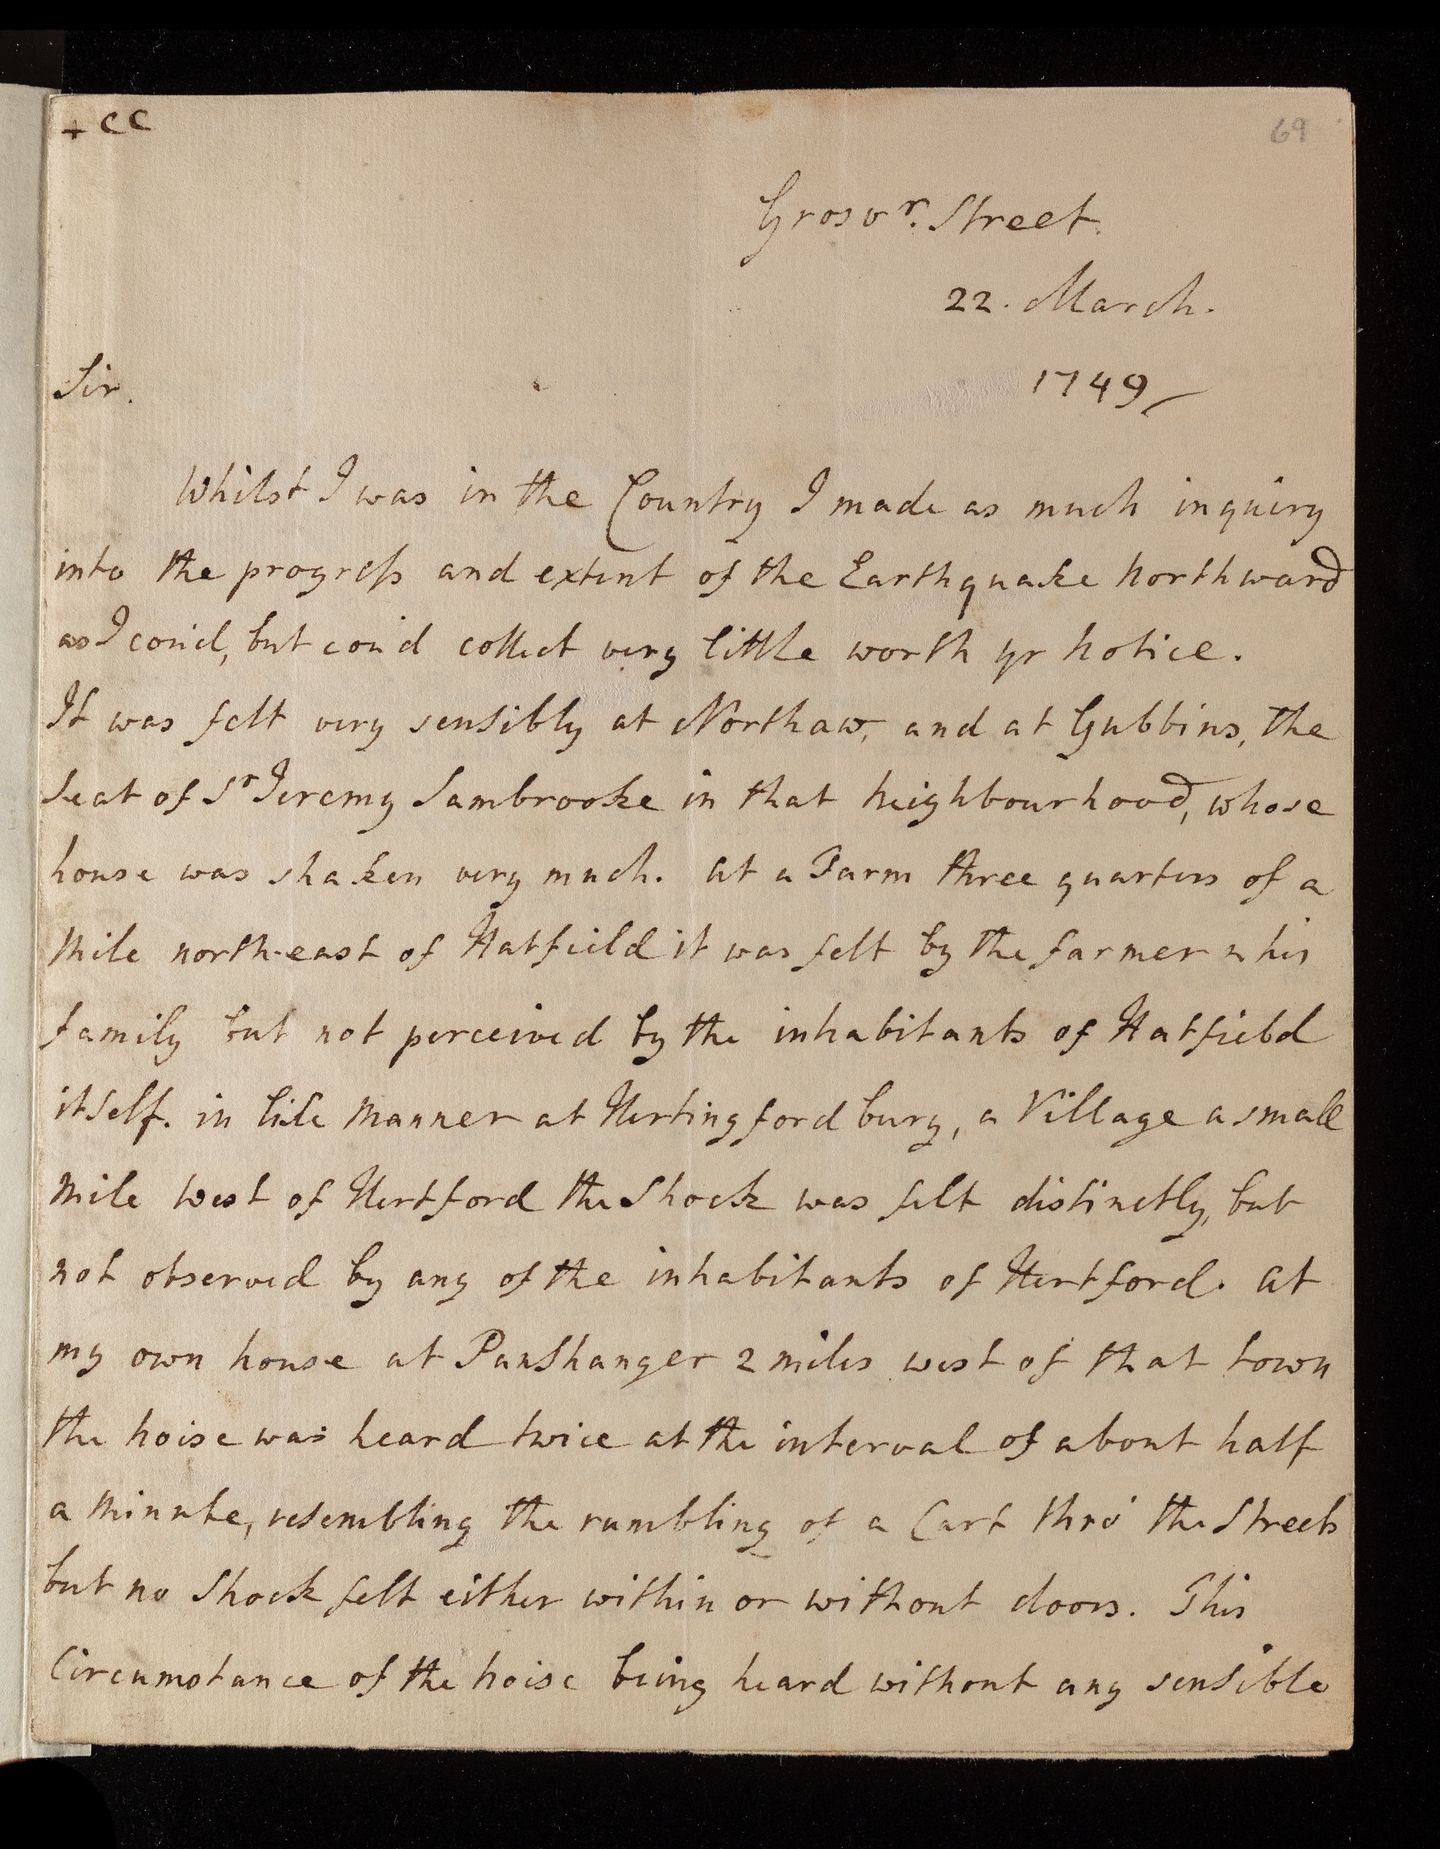 + CC
69
Grosvr. Street.
22. March.
1749
Sir.
Whilst I was in the Country I made as much inquiry
into the progress and extent of the Earthquake Northward
as I cou'd, but cou'd collect very little worth yr notice.
It was felt very sensibly at Northaw, and at Gubbins, the
Seat of Sr Jeremy Sambrooke in that neighbourhood, whose
house was shaken very much. at a Farm three quarters of a
Mile north-east of Hatfield it was felt by the farmer & his
family but not perceived by the inhabitants of Hatfield
itself. in like Manner at Hertingfordbury, a Village a small
Mile West of Hertford the Shock was felt distinctly, but
not observed by any of the inhabitants of Hertford. at
my own house at Panshanger 2 miles west of that town
the noise was heard twice at the interval of about half
a Minute, resembling the rumbling of a Cart thro' the Streets
but no Shock felt either within or without doors. This
Circumstance of the noise being heard without any sensible